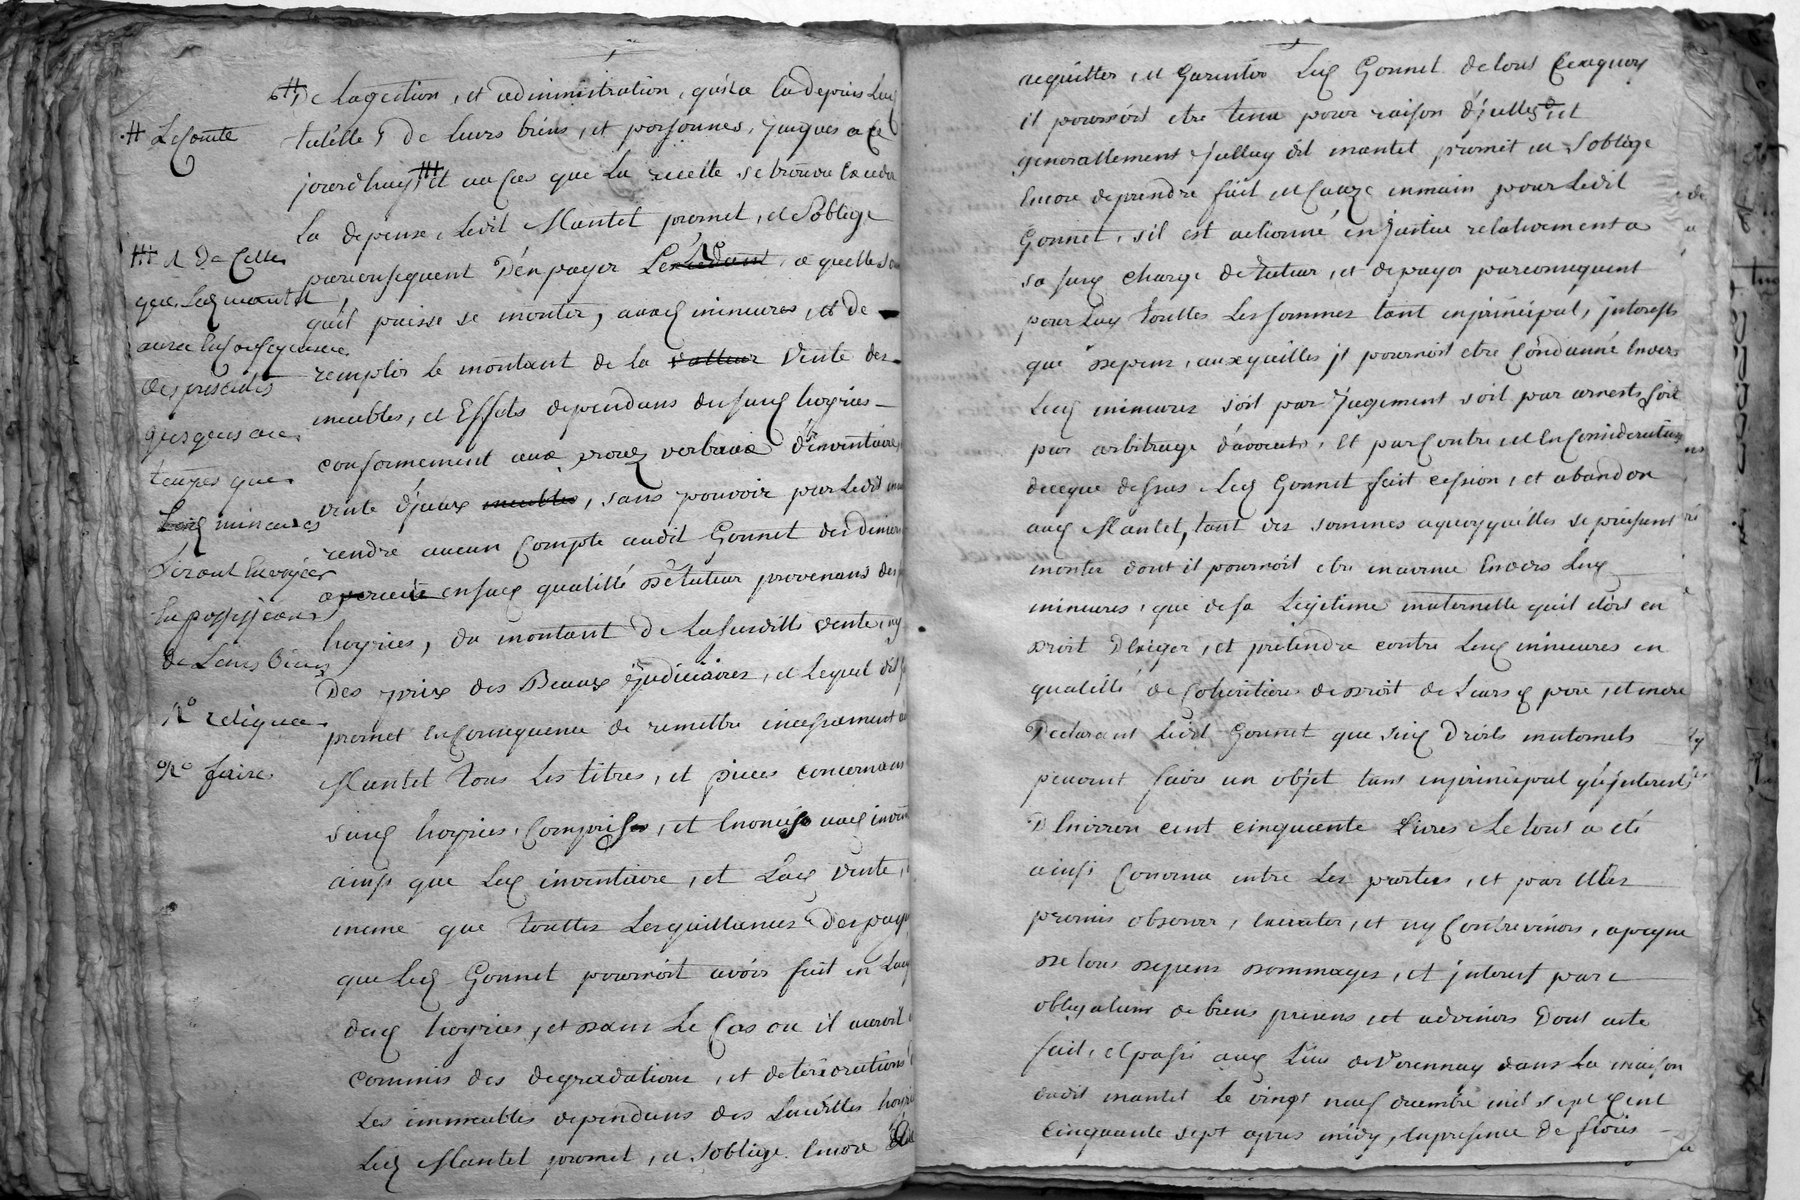 # Le compte
## et de celle
que led mantel
aura les
des presentes
jusques au
temps que
lesd mineures
seront envoyées
en possession
de leurs biens
n° religuer
n° faire
de lagestion, et administration, quila eu depuis lad
tutelle, de leurs biens, et personnes, jusques a ce
jourd'huy ## et au cas que la recette se trouva exceder
la depense, ledit Mantel promet, et s'oblige
parconsequent d'en payer, a quelle somme
quil puisse se monter, auxd mineures, et de
remplir le montant de la valleur vente des
meubles, et Effets dependans desusd hoyries
conformement aux proces verbaux d'inventaire,
vente d'jceux meubles, sans pouvoir par ledit
rendre aucun Compte audit Gonnet des deniers
en sad qualitté de tuteur provenans des
hoyries, du montant de lasusditte vente, ny
des prix des Beaux judiciaires, et lequel dit
promet en Consequence de remettre incessament
Mantel tous les titres, et pieces concernans
susd hoyries, comprises, et enoncés auxd
ainsy que led inventaire, et lad vente,
meme que touttes les quittances des
que led Gonnet pourroit avoir fait en lad
desd hoyries, et dans le Cas ou il auroit
commis des degradations, et deteriorations
les immeubles dependans des susdittes
led Mantel promet, et s'oblige encore
acquitter, et garentir led Gonnet de tout ce aquoy
il pourroit etre tenu pour raison d'jcelles, et
generallement jcelluy dit mantel promet et s'oblige
encore de prendre fait et cauze en main pour ledit
Gonnet, s'il est actionné en justice relativement a
sa susd charge de tuteur, et de payer parconsequent
pour luy touttes les sommes tant en principal, jnterests
que depens, auxquelles jl pourroit etre Condanné envers
lesd mineures soit par jugement soit par arrests soit
par arbitrage d'avocats, Et par Contre et en Consideration
de ceque dessus led Gonnet fait cession, et abandon
aud Mantel, tant des sommes aquoy quelles se puissent
monter dont il pourroit etre envers lesd
mineures, que de sa Legitime maternelle quil doit en
droit Exiger, et pretendre contre lesd mineures en
qualitté de Coheritieres de droit de leursd pere, et mere
Declarant ledit Gonnet que sesd Droits maternels
peuvent faire un objet tant en principal qu'jnterests
D'Environ cent cinquante Livres Le tout a eté
ainsy Convenu entre les parties, et par elles
promis observer, Executer, et ny Contrevenir, a peyne
de tous depens dommages, et jnterest par
obligations de biens presens, et advenirs Dont acte
fait, et passé aud Lieu de Verennay dans la maison
dudit mantel le vingt neuf decembre mil sept Cent
cinquante sept apres midy, en presence de